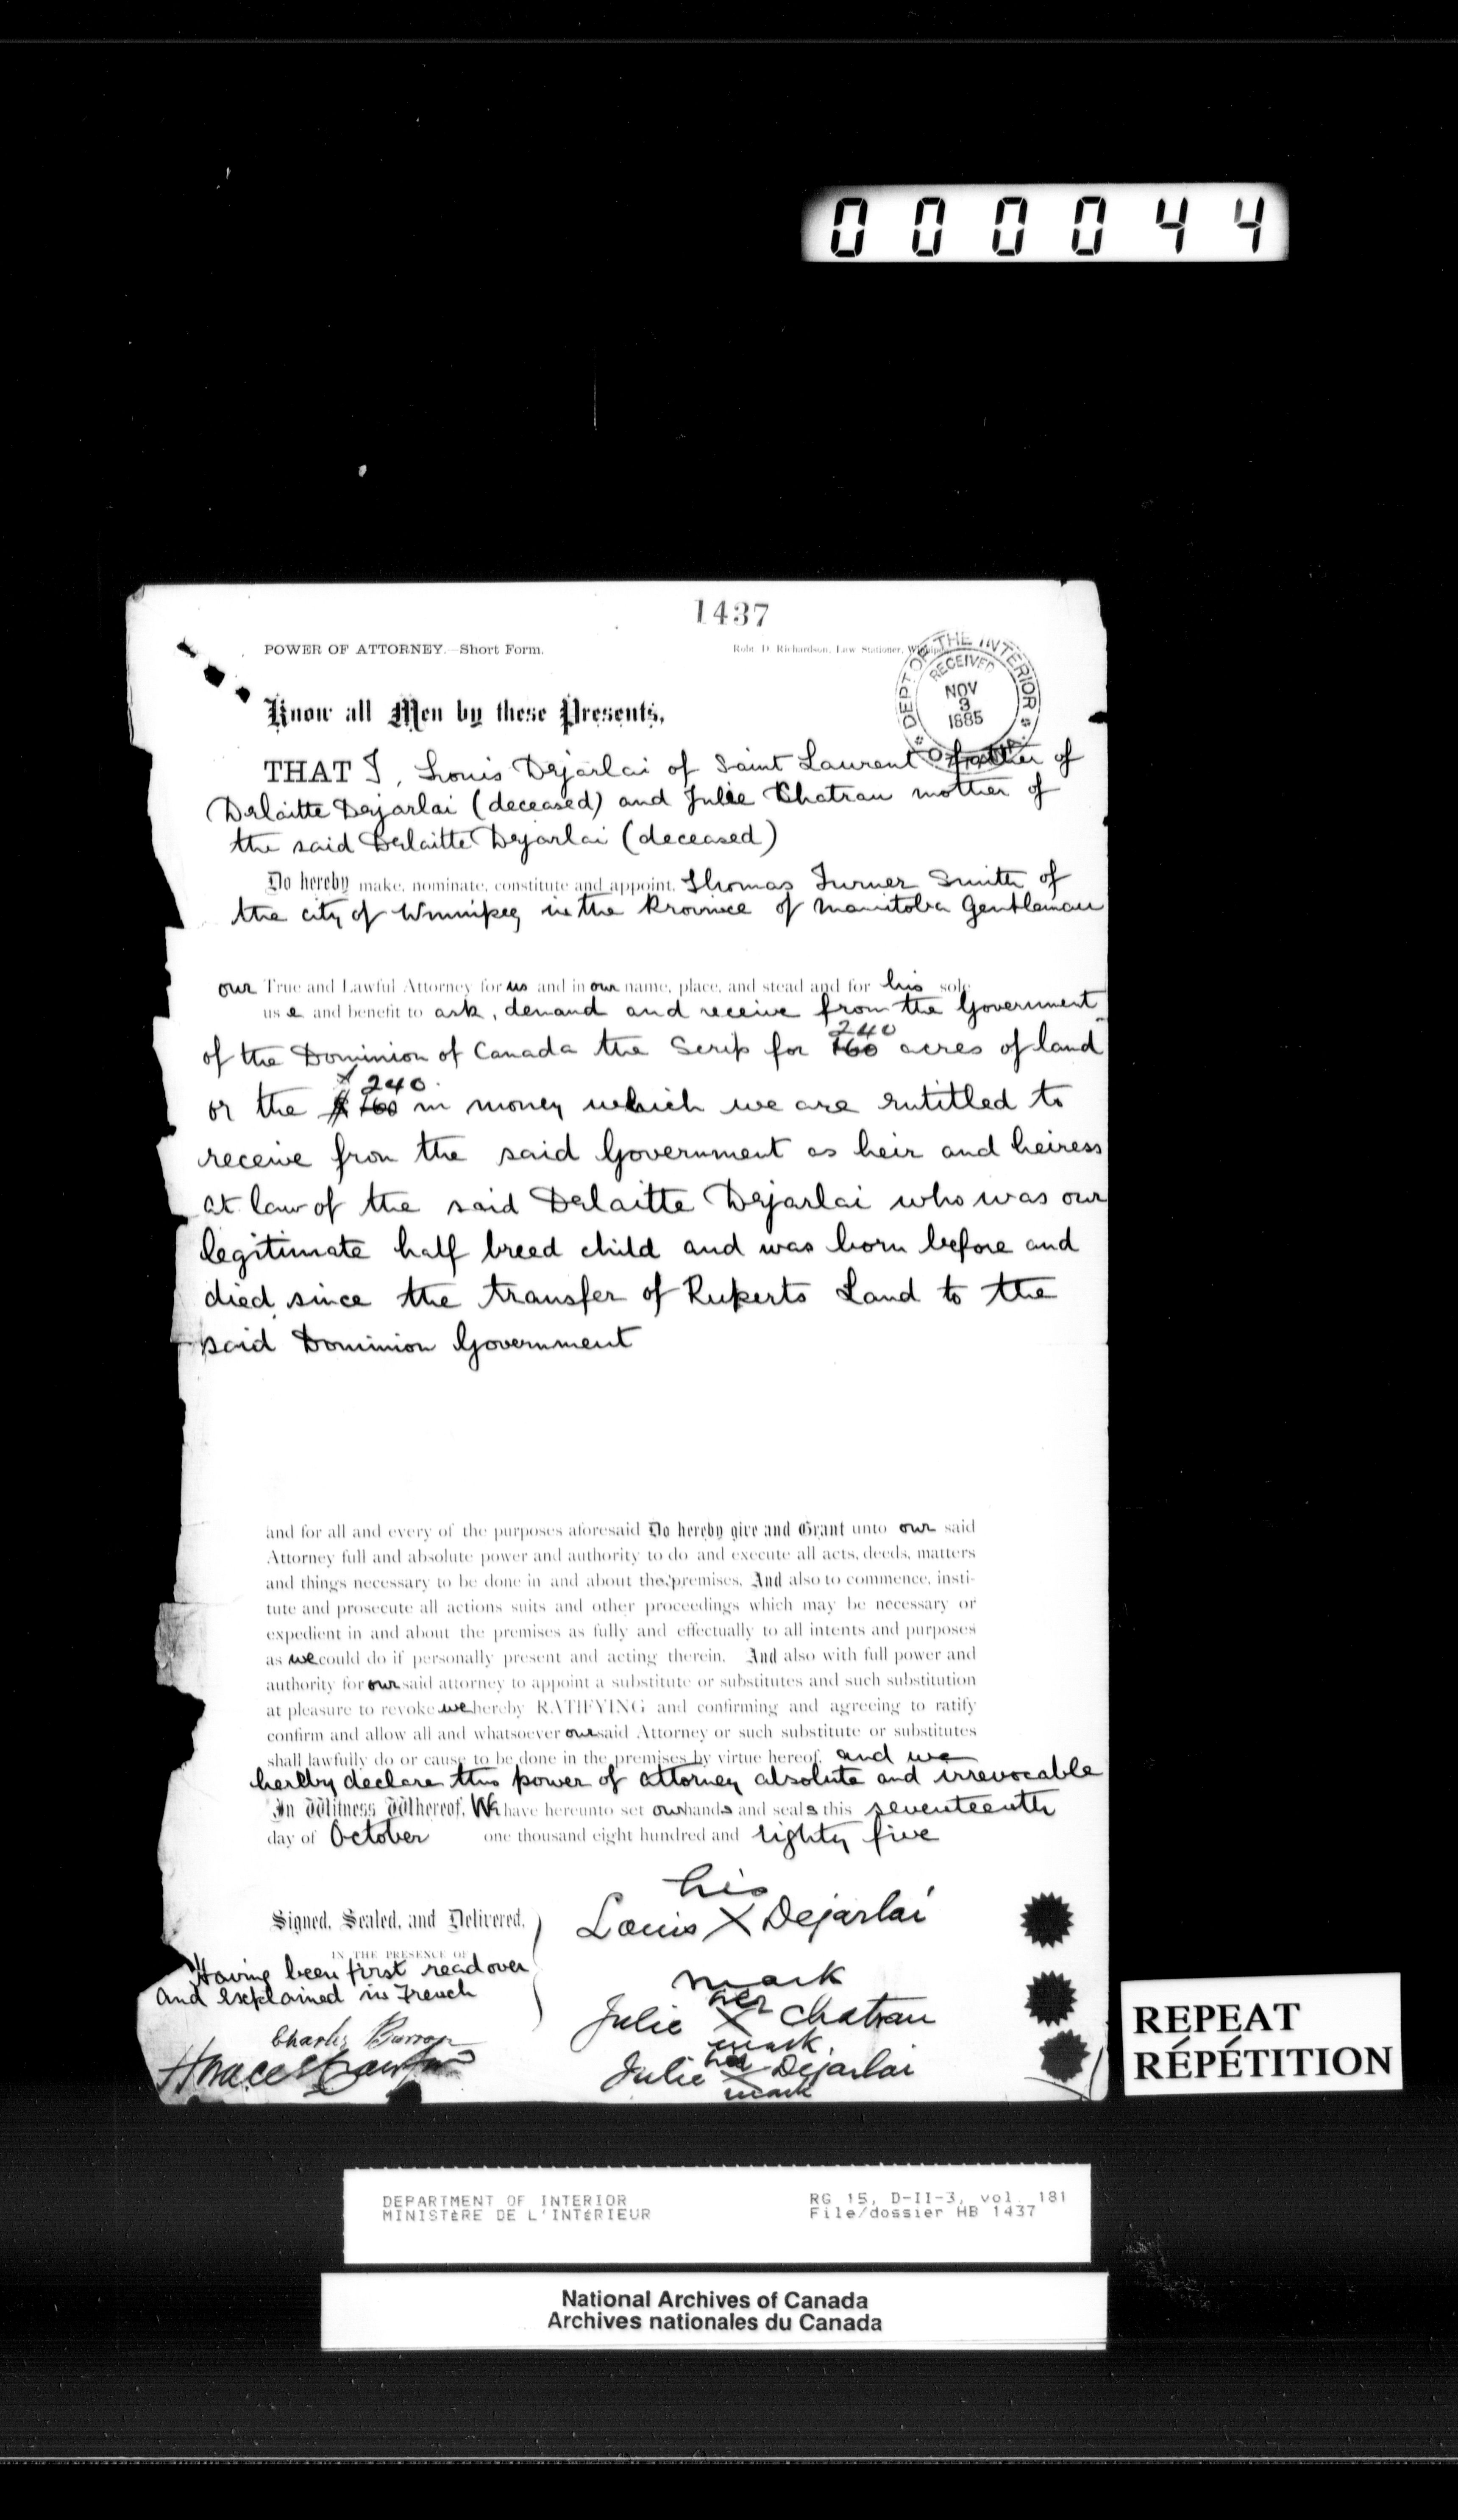 000044
1437
POWER OF ATTORNEY.—Short Form.
Robt. D. Richardson, Law Stationer, Winnipeg
DEPT OF THE INTERIOR
RECEIVED
NOV
3
1885
OTTAWA
Know all Men by these Presents,
THAT I, Louis Dejarlai of Saint Laurent father of
Delaitte Dejarlai (deceased) and Julie Chatrau mother of
the said Delaitte Dejarlai (deceased)
Do hereby make, nominate, constitute and appoint, Thomas Turner Smith of
the city of Winnipeg in the Province of Manitoba Gentleman
our True and Lawful Attorney for us and in our name, place, and stead and for his sole
use and benefit to ask, demand and receive from the Government
240
of the Dominion of Canada the Scrip for 160 acres of land
240
or the $ 160 in money which we are entitled to
receive from the said Government as heir and heiress
at law of the said Delaitte Dejarlai who was our
legitimate half breed child and was born before and
died since the transfer of Ruperts Land to the
said Dominion Government
and for all and every of the purposes aforesaid Do hereby give and Grant unto our said
Attorney full and absolute power and authority to do and execute all acts, deeds, matters
and things necessary to be done in and about the premises, And also to commence, insti-
tute and prosecute all actions suits and other proceedings which may be necessary or
expedient in and about the premises as fully and effectually to all intents and purposes
as we could do if personally present and acting therein. And also with full power and
authority for our said attorney to appoint a substitute or substitutes and such substitution
at pleasure to revoke we hereby RATIFYING and confirming and agreeing to ratify
confirm and allow all and whatsoever our said Attorney or such substitute or substitutes
shall lawfully do or cause to be done in the premises by virtue hereof. and we
hereby declare this power of attorney absolute and irrevocable
In Witness Whereof, We have hereunto set our hands and seals this seventeenth
day of October one thousand eight hundred and eighty five
his
Signed, Sealed, and Delivered, Louis X Dejarlai
IN THE PRESENCE OF
Having been first read over
mark
and explained in French
her
Julie X Chatrau
mark
Charles
her
Julie X Dejarlai
mark
REPEAT
RÉPÉTITION
DEPARTMENT OF INTERIOR
MINISTÈRE DE L'INTÉRIEUR
RG 15, D-II-3, vol. 181
File/dossier HB 1437
National Archives of Canada
Archives nationales du Canada